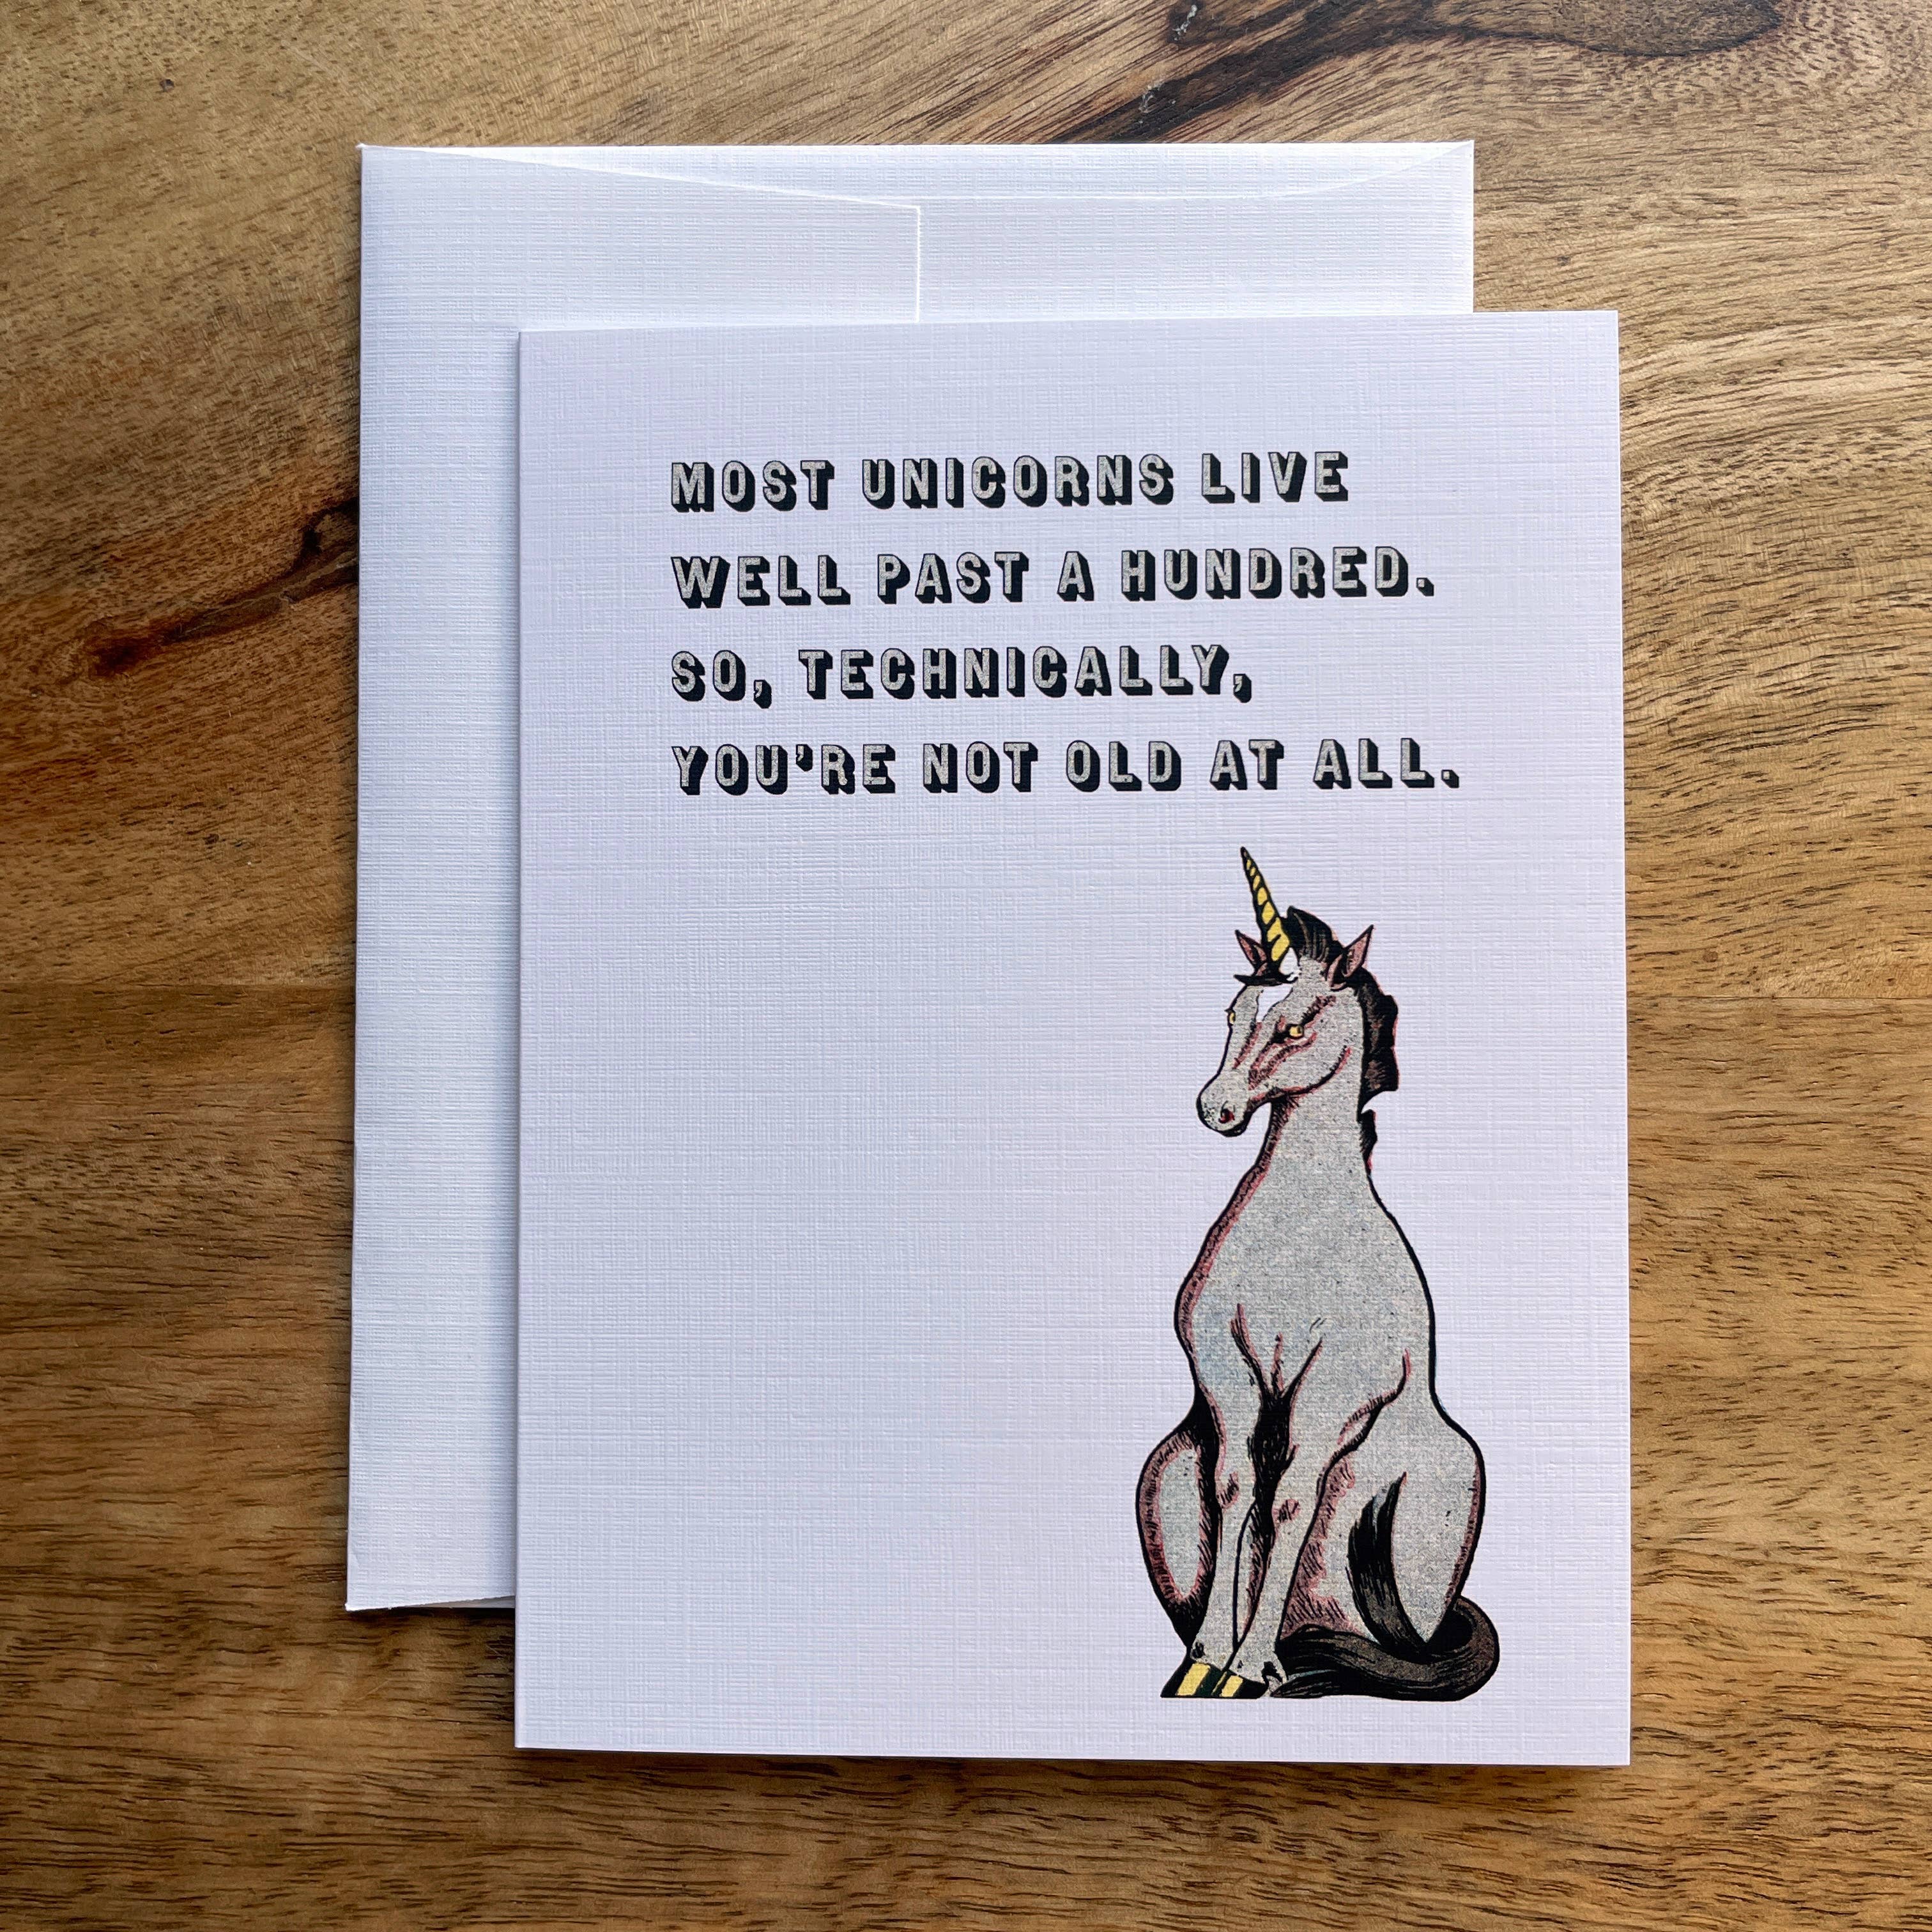 MOST UNICORNS LIVE
WELL PAST A HUNDRED.
SO, TECHNICALLY,
YOU'RE NOT OLD AT ALL.